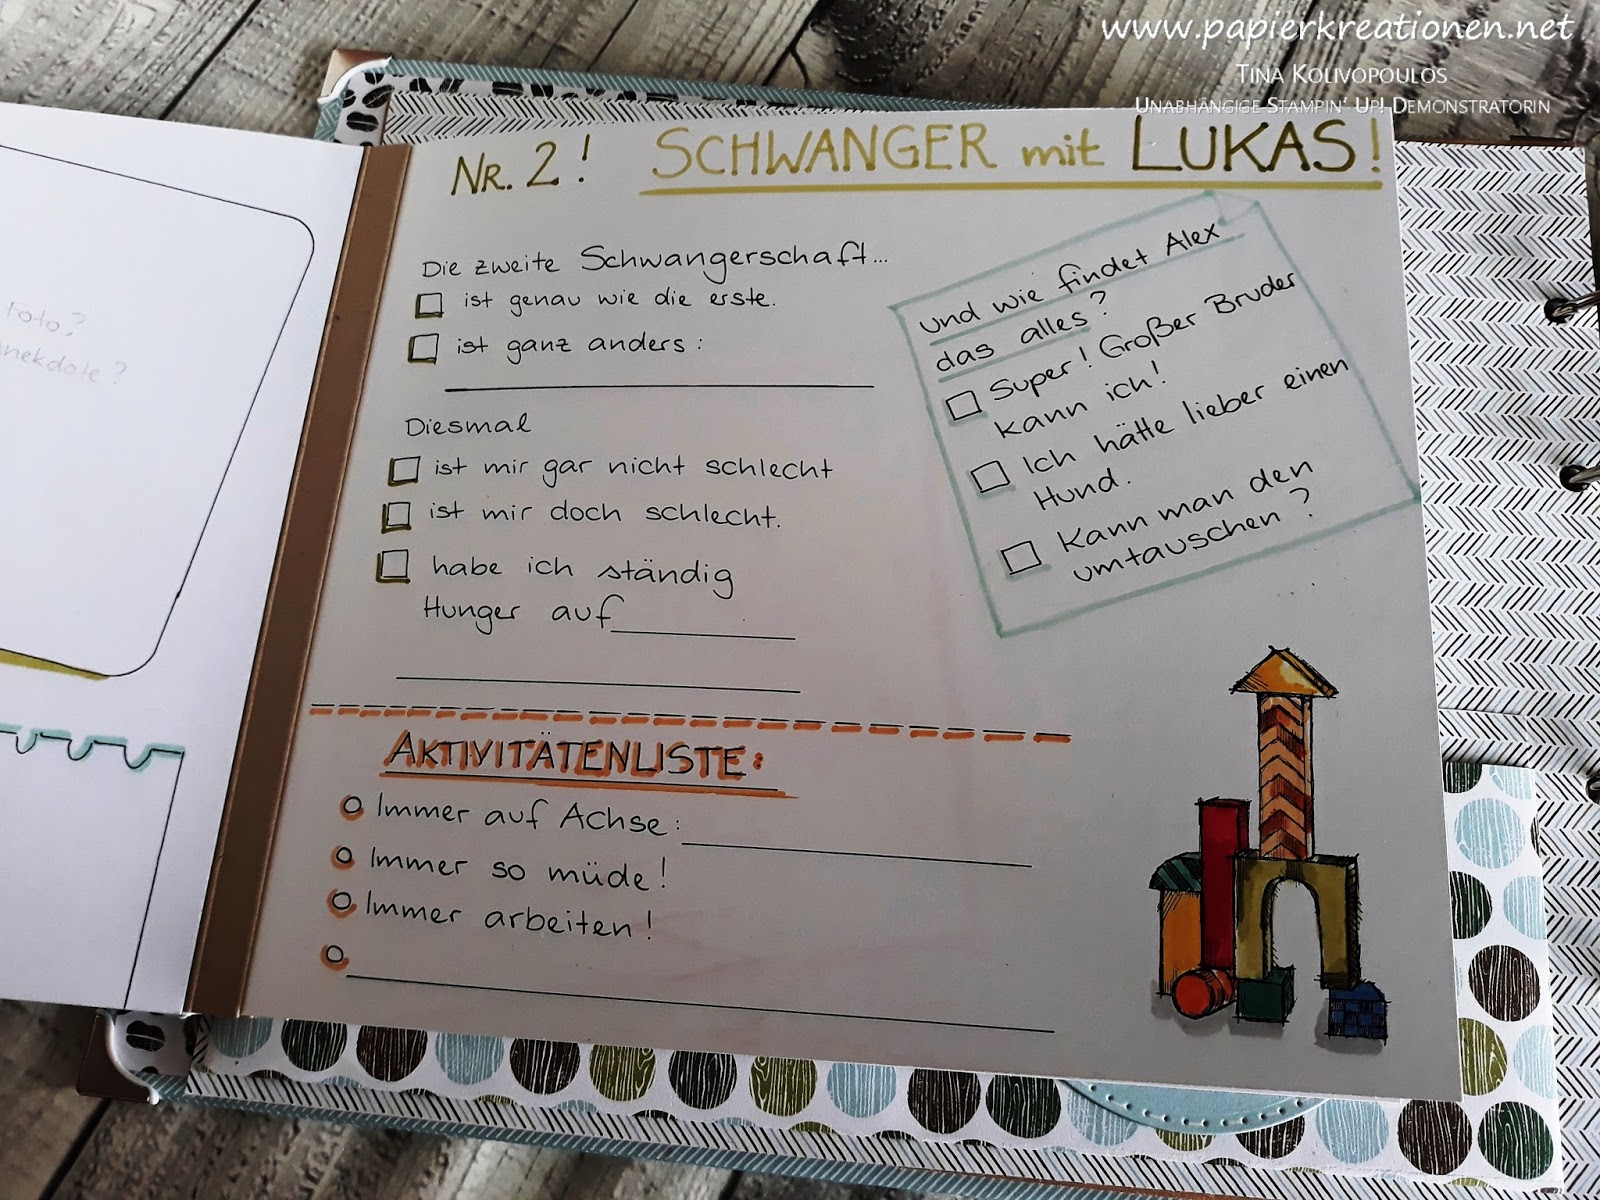 www.papierkreationen.net
Tina Kolivopoulos
Unabhängige Stampin' Up! Demonstratorin
Foto?
Anekdote?
Nr. 2! SCHWANGER mit LUKAS!
Die zweite Schwangerschaft...
ist genau wie die erste.
ist ganz anders:
Diesmal
ist mir gar nicht schlecht
ist mir doch schlecht.
habe ich ständig
Hunger auf
und wie findet Alex
das alles?
Super! Großer Bruder
kann ich!
Ich hätte lieber einen
Hund.
Kann man den
umtauschen?
AKTIVITÄTENLISTE:
Immer auf Achse:
Immer so müde!
Immer arbeiten!